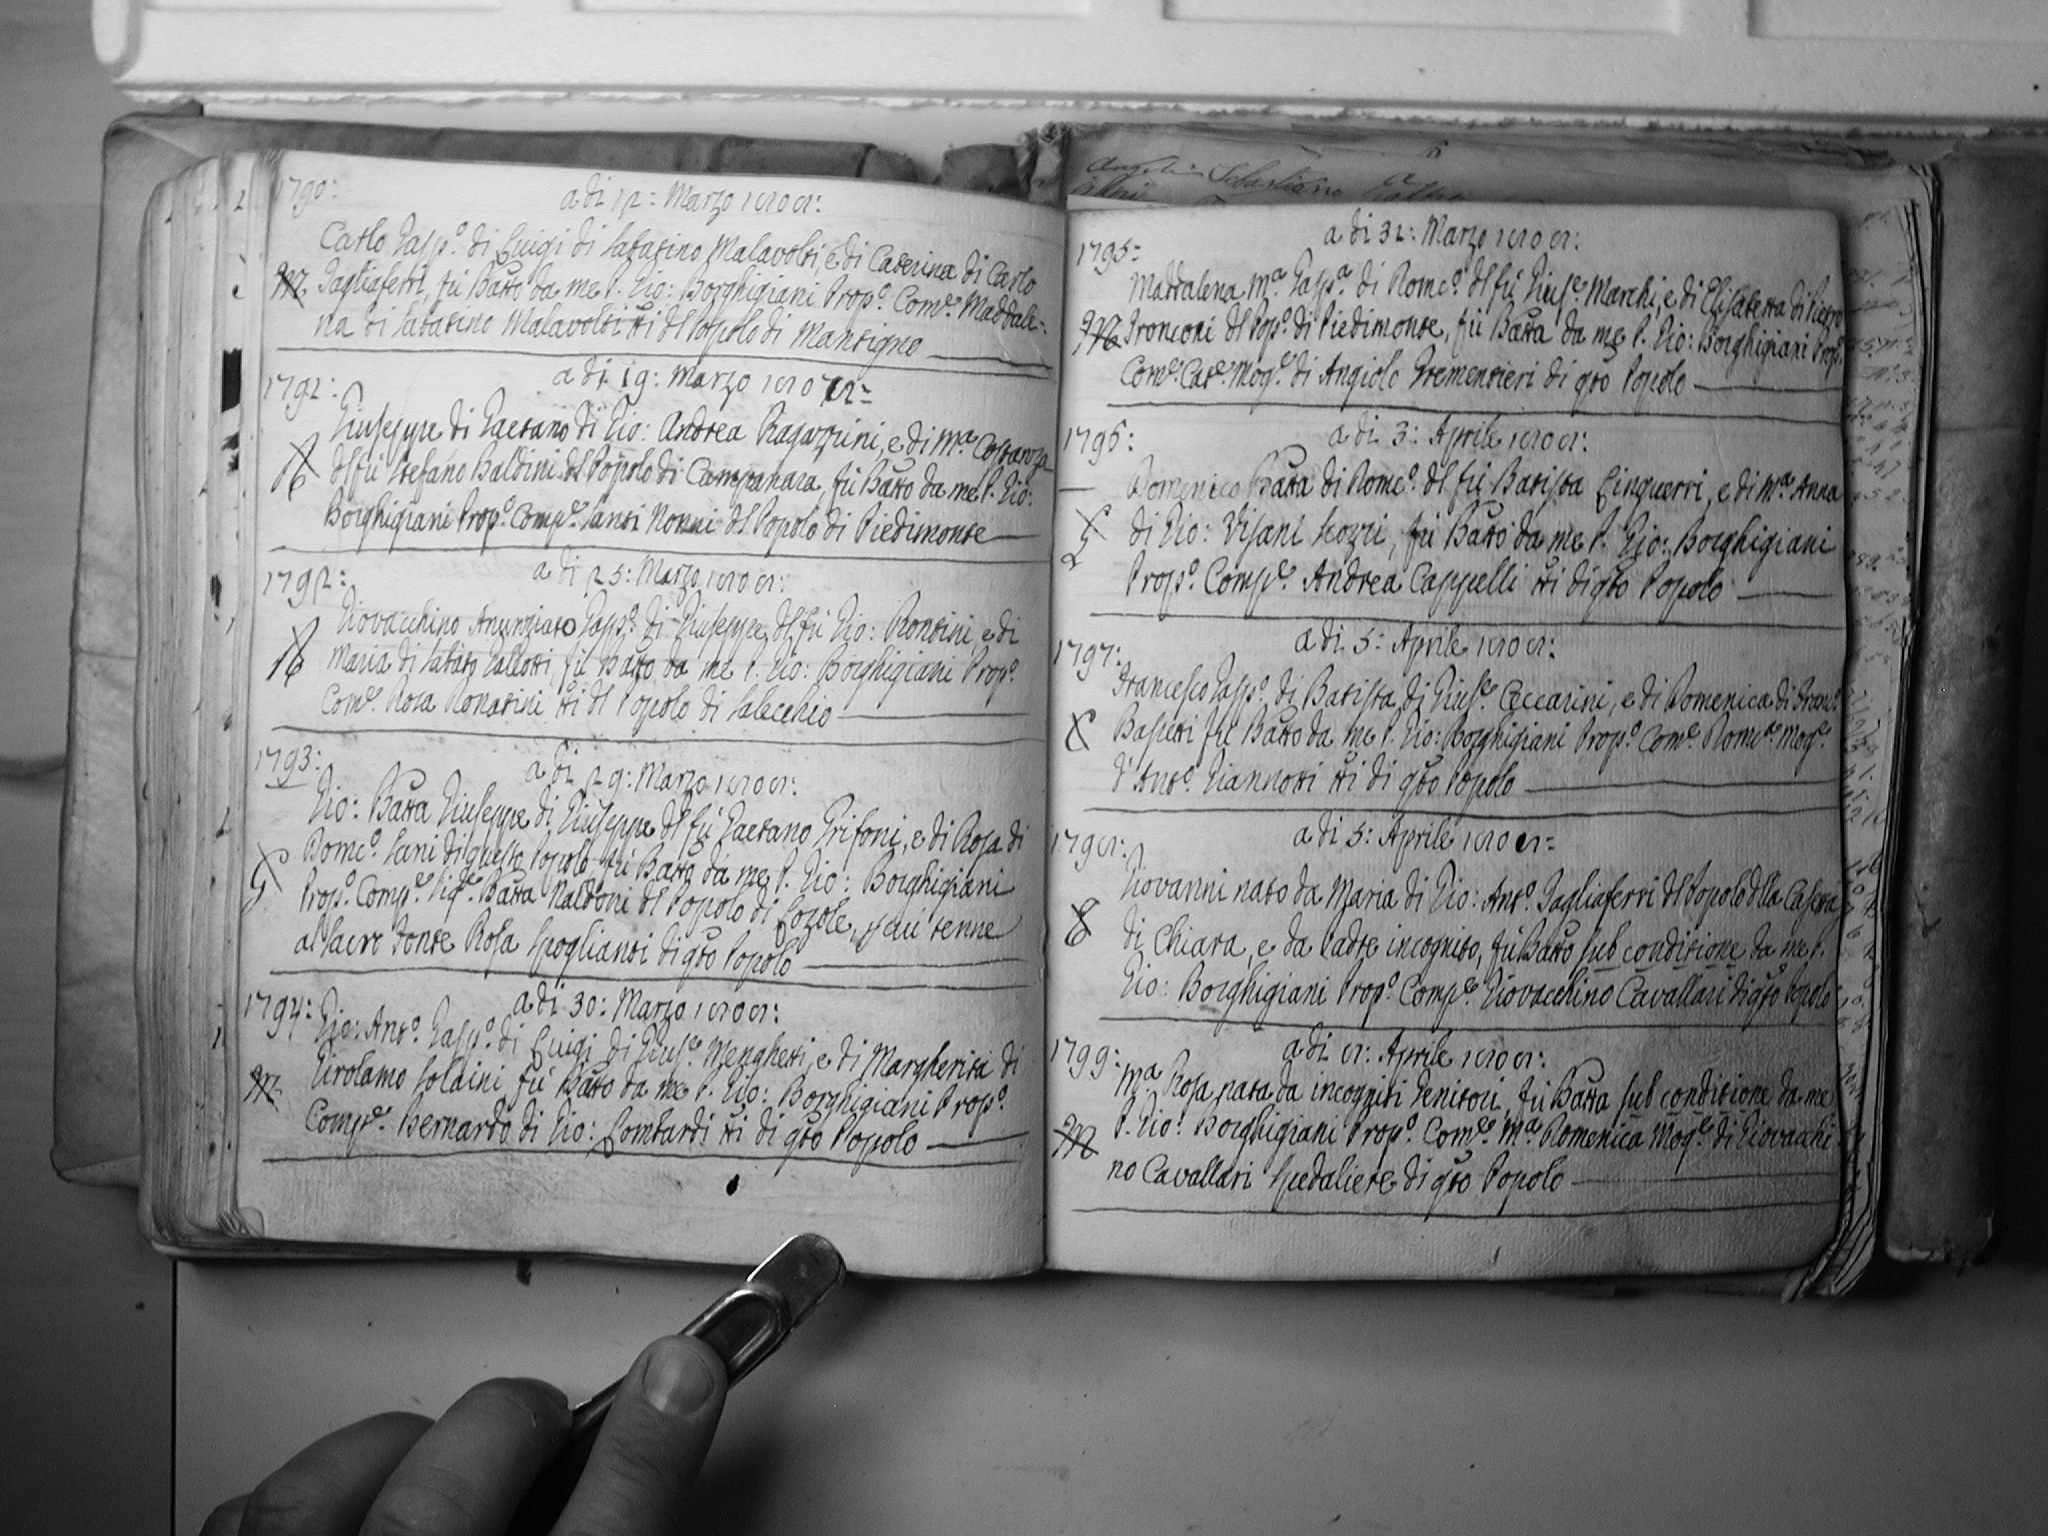 1790:
a di 12: Marzo 1808:
Carlo Gasp.º di Luigi di Sabatino Malavolti, e di Caterina di Carlo
M Tagliaferri, fù Batto da me P. Gio: Borghigiani Prop.º Com.e Maddale=
na di Sabatino Malavolti tti dl Popolo di Mantigno
1791:
a di 19: Marzo 1808=
Giuseppe di Gaetano di Gio: Andrea Ragazzini, e di M.a Costanza
R dl fù Stefano Baldini dl Popolo di Campanara, fù Batto da me P. Gio:
Borghigiani Prop.º Comp.e Santi Nonni dl Popolo di Piedimonte
1792:
a di 25: Marzo 1808:
Giovacchino Anunziato Gasp.º di Giuseppe dl fù Gio: Rontini, e di
R Maria di Sabato Gallotti, fù Batto da me P. Gio: Borghigiani Prop.º
Com.e Rosa Ronatini tti dl Popolo di Salecchio
1793:
a di 29: Marzo 1808:
Gio: Batta Giuseppe di Giuseppe dl fù Gaetano Grifoni, e di Rosa di
Dom.co Sani di questo Popolo fù Batto da me P. Gio: Borghigiani
G Prop.º Comp.e Batta Naldoni dl Popolo di Lozole,
al Sacro Fonte Rosa Spoglianti di qto Popolo
1794:
a di 30: Marzo 1808:
Gio: Ant.º Gasp.º di Luigi di Gius.e Menghetti, e di Margherita di
M Girolamo Solaini fù Batto da me P. Gio: Borghigiani Prop.º
Comp.e Bernardo di Gio: Lombardi tti di qto Popolo
Sebastiano
1795:
a di 31: Marzo 1808:
Maddalena M.a Gasp.a di Dom.co dl fù Gius.e Marchi, e di Elisabetta di Pietro
M Tronconi dl Pop.º di Piedimonte, fù Batta da me P. Gio: Borghigiani Prop.º
Com.e Cat.a Mog.e di Angiolo Trementieri di qto Popolo
1796:
a di 3: Aprile 1808:
Domenico Batta di Dom.co dl fù Batista Linguerri, e di M.a Anna
L di Gio: Visani Scozzi, fù Batto da me P. Gio: Borghigiani
Prop.º Comp.e Andrea Cappelli tti di qto Popolo
1797:
a di 5: Aprile 1808:
Francesco Gasp.º di Batista di Gius.e Ceccarini, e di Domenica di Fran.co
C Basetti fù Batto da me P. Gio: Borghigiani Prop.º Com.e Dom.ca Mog.e
d'Ant.º Giannotti tti di qto Popolo
1798:
a di 5: Aprile 1808=
Giovanni nato da Maria di Gio: Ant.º Tagliaferri dl Popolo dlla Casetta
di Chiara, e da Padre incognito, fù Batto sub conditione da me P.
Gio: Borghigiani Prop.º Comp.e Giovacchino Cavallari di qto Popolo
1799:
a di 8: Aprile 1808:
M.a Rosa nata da incogniti Genitori, fù Batta sub conditione da me
M P. Gio: Borghigiani Prop.º Com.e M.a Domenica Mog.e di Giovacchi
no Cavallari Spedaliere di qto Popolo